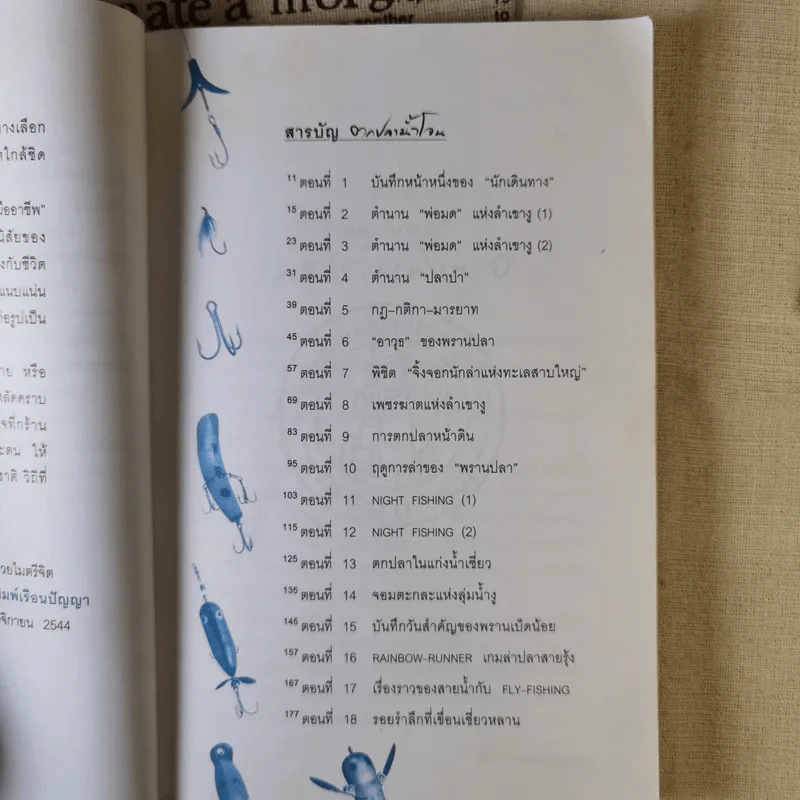 eate a
another
างเลือก
ตใกล้ชิด
มืออาชีพ"
นิสัยของ
งกับชีวิต
แนบแน่น
าย หรือ
ลัดคราบ
จที่กร้าน
ะตน ให้
าติ วิถีที่
วยไมตรีจิต
มพ์เรือนปัญญา
จิกายน 2544
สารบัญ ตกปลาน้ำโจน
11 ตอนที่ 1 บันทึกหน้าหนึ่งของ "นักเดินทาง"
15 ตอนที่ 2 ตำนาน "พ่อมด" แห่งลำเขางู (1)
23 ตอนที่ 3 ตำนาน "พ่อมด" แห่งลำเขางู (2)
31 ตอนที่ 4 ตำนาน "ปลาป่า"
39 ตอนที่ 5 กฎ-กติกา-มารยาท
45 ตอนที่ 6 "อาวุธ" ของพรานปลา
57 ตอนที่ 7 พิชิต "จิ้งจอกนักล่าแห่งทะเลสาบใหญ่"
69 ตอนที่ 8 เพชรฆาตแห่งลำเขางู
83 ตอนที่ 9 การตกปลาหน้าดิน
95 ตอนที่ 10 ฤดูการล่าของ "พรานปลา"
103 ตอนที่ 11 NIGHT FISHING (1)
115 ตอนที่ 12 NIGHT FISHING (2)
125 ตอนที่ 13 ตกปลาในแก่งน้ำเชี่ยว
135 ตอนที่ 14 จอมตะกละแห่งลุ่มน้ำงู
145 ตอนที่ 15 บันทึกวันสำคัญของพรานเบ็ดน้อย
157 ตอนที่ 16 RAINBOW-RUNNER เกมล่าปลาสายรุ้ง
167 ตอนที่ 17 เรื่องราวของสายน้ำกับ FLY-FISHING
177 ตอนที่ 18 รอยรำลึกที่เขื่อนเชี่ยวหลาน